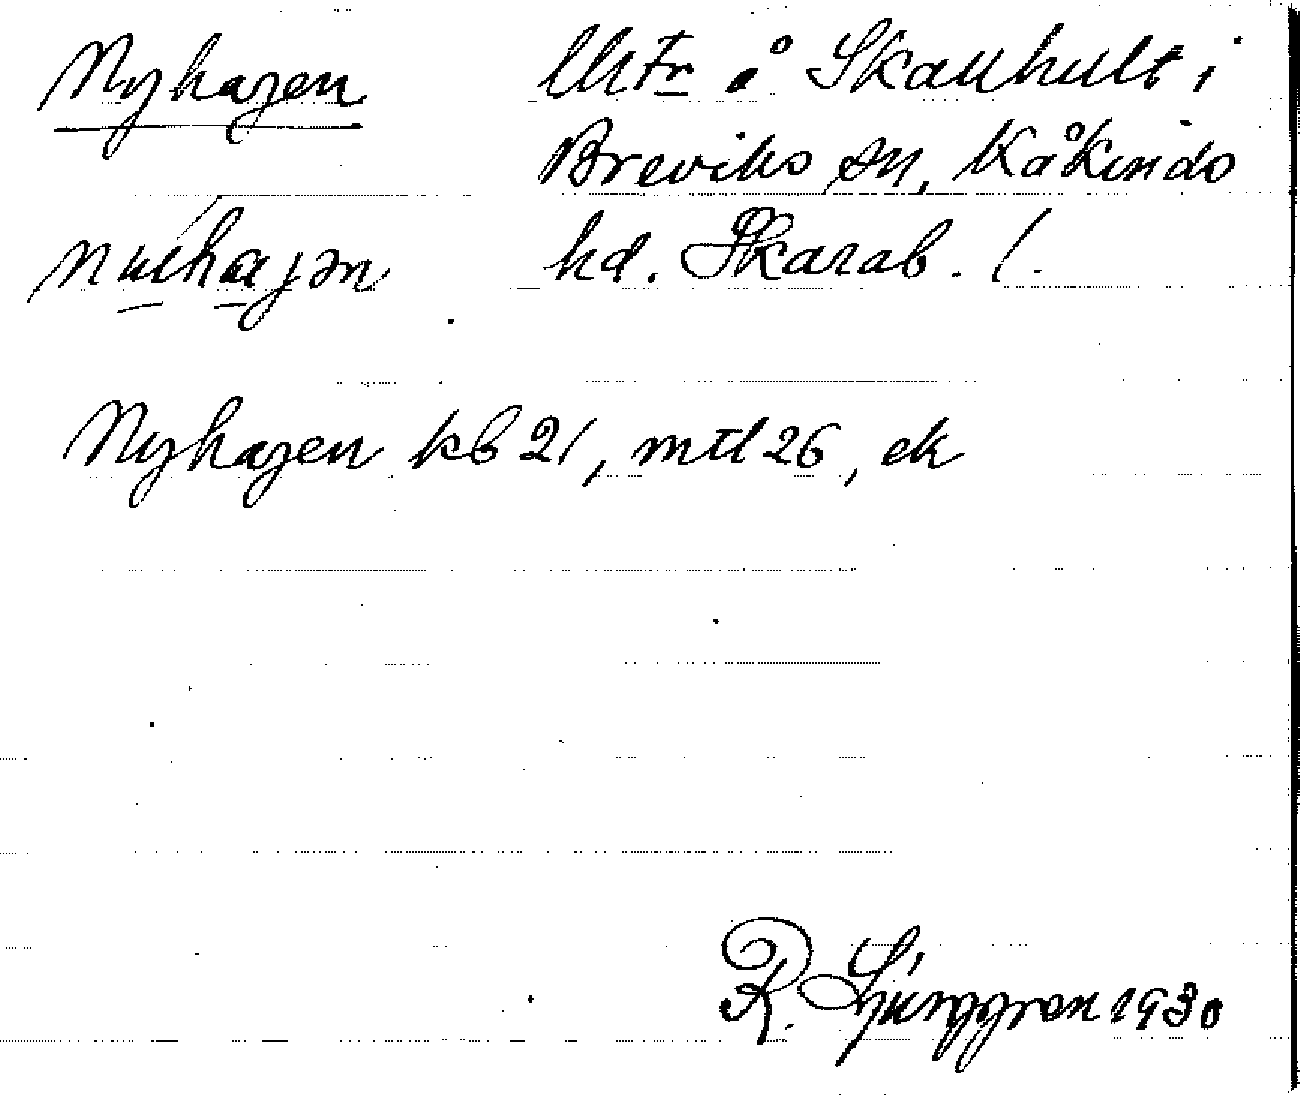 Nyhagen Utfr å Skauhult i
Breviks sn, Kåkinds
hd. Skarab. l.
Nyhagen kb 21, mtl 26, ek
R. Ljunggren 1930